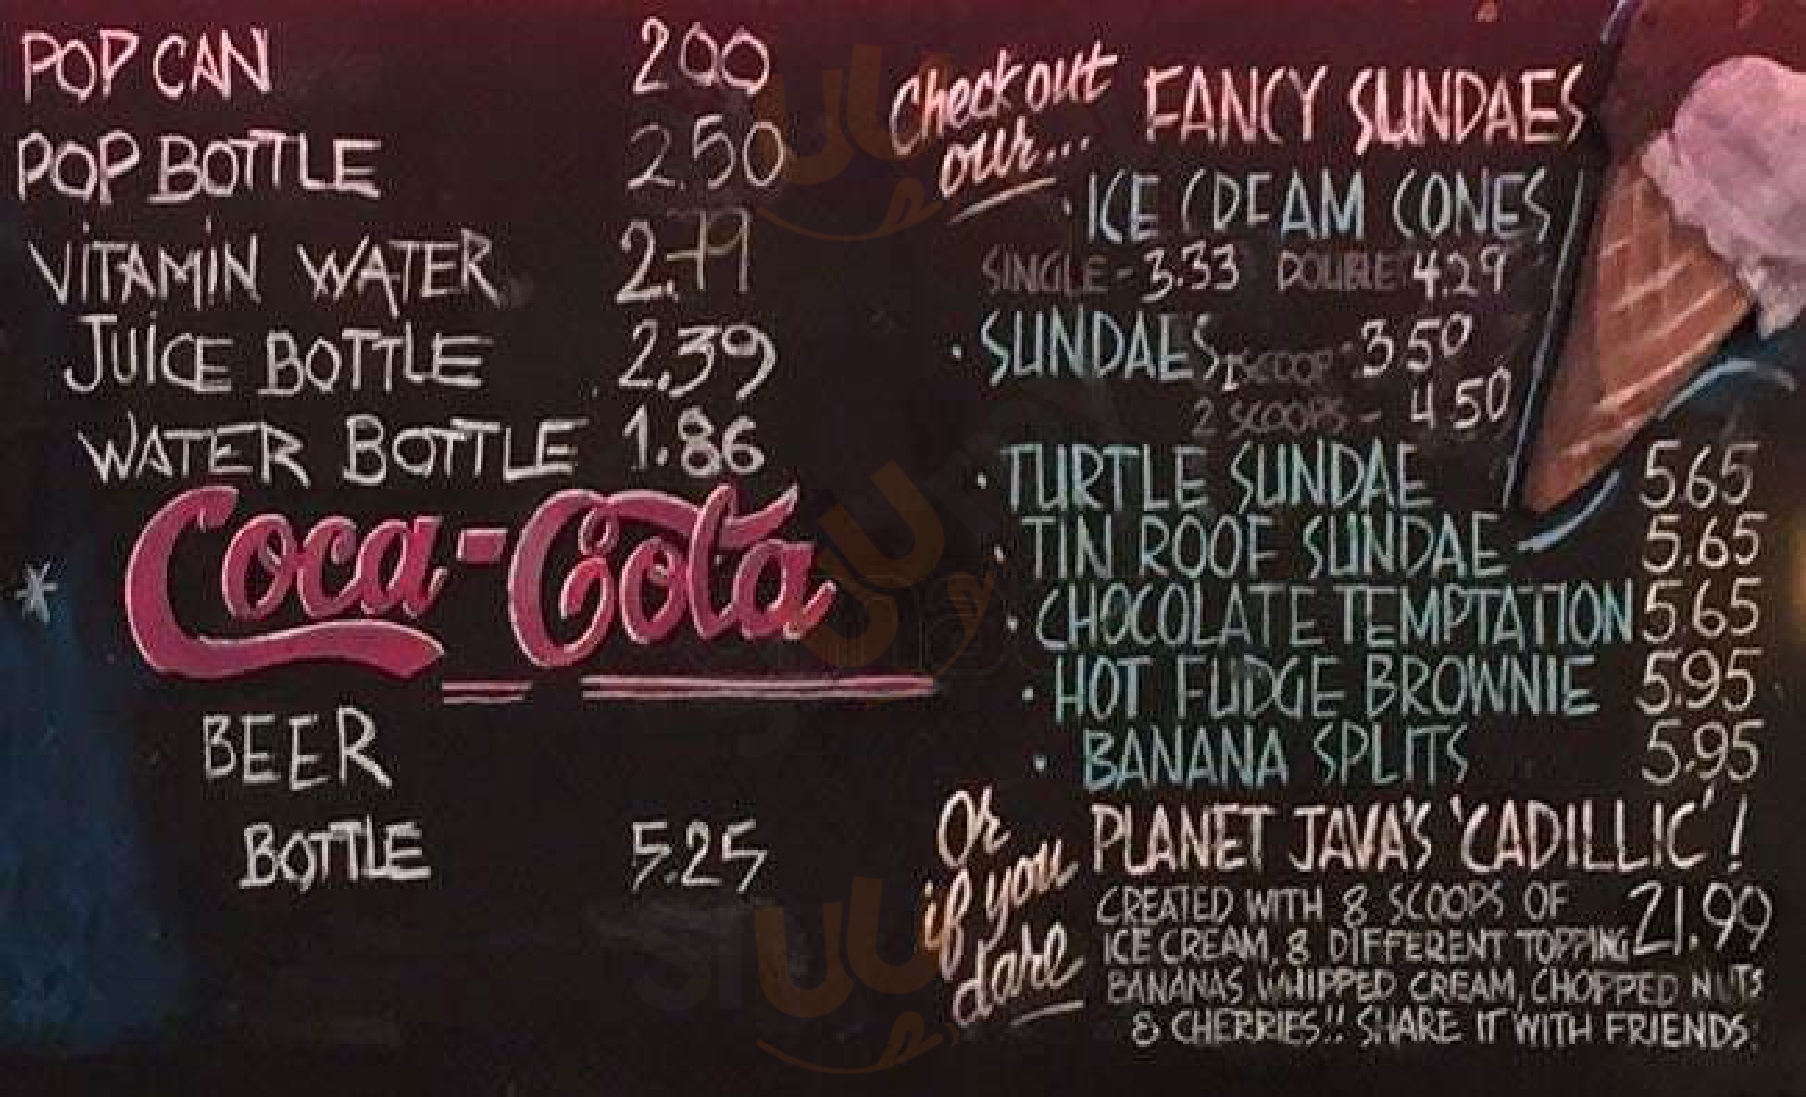 POP CAN 2.00
POP BOTTLE 2.50
VITAMIN WATER 2.79
JUICE BOTTLE 2.39
WATER BOTTLE 1.86
Coca-Cola
BEER
BOTTLE 5.25
Check out
our... FANCY SUNDAES
· ICE CREAM CONES
SINGLE - 3.33 DOUBLE 4.29
· SUNDAES 1 SCOOP - 3.50
2 SCOOPS - 4.50
· TURTLE SUNDAE 5.65
· TIN ROOF SUNDAE 5.65
· CHOCOLATE TEMPTATION 5.65
· HOT FUDGE BROWNIE 5.95
· BANANA SPLITS 5.95
Or
if you
dare
PLANET JAVA'S 'CADILLIC'!
CREATED WITH 8 SCOOPS OF 21.99
ICE CREAM, 8 DIFFERENT TOPPING
BANANAS, WHIPPED CREAM, CHOPPED NUTS
& CHERRIES!! SHARE IT WITH FRIENDS.